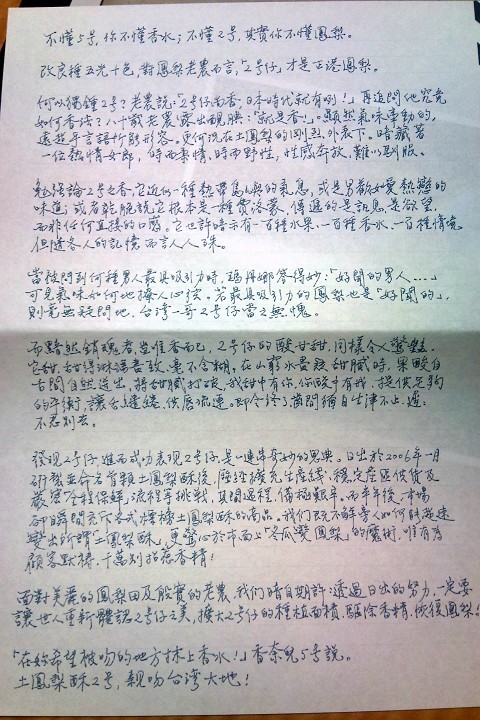 不懂5号,你不懂香水;不懂2号,其實你不懂鳳梨。
改良種五光十色,對鳳梨老農而言,「2号仔」才是正港鳳梨。
何以獨鍾2号?老農說:「2号仔尚香,日本時代就有咧!」再追問他究竟
如何香法?八十歲老農露出靦腆:「就是香!」。顯然氣味牽動的,
遠超乎言語所能形容。更何況在土鳳梨的剛烈外表下,暗藏著
一位熱情女郎,時而熱情,時而野性,性感奔放,難以馴服。
勉強論2号之香,它近似一種熱帶鳥與的氣息,或是男歡女愛熱戀的
味道;或者乾脆說它根本是一種費洛蒙,傳遞的是訊息是欲望,
而非任何直接的口感。它也許暗示有一百種水果,一百種香水,一百種情境
但隨各人的記憶而言人人殊。
當被問到何種男人最具吸引力時,瑪丹娜答得妙:「好聞的男人....」
可見氣味如何地撩人心弦。若最具吸引力的鳳梨也是「好聞的」,
則毫無疑問地,台灣一哥2号仔當之無愧。
而黯然銷魂者,豈惟香而已,2号仔的酸甘甜,同樣令人驚艷。
它甜,甜得淋漓盡致,毫不含糊,在山窮水盡疑甜膩時,果酸自
舌間自然迸出,將甜膩打破,我甜中有你,你酸中有我,提供足夠
的平衡,讓舌遶繞,供唇流連。即令終了齒間猶自生津不止,遲遲
不忍別去。
發現2号仔,進而成功表現2号仔,是一連串奇妙的恩典。日出於2006年一月
研發並命名首顆土鳳梨酥後,歷經擴充生產線、穩定產區供貨及
嚴密全程保鮮,流程等挑戰,其間過程,備極艱辛。而半年後,市場
卻瞬間充下各式樣標土鳳梨酥的商品。我們既不解旁人如何能超速
變出所謂「土鳳梨酥」,更驚心於市面上「冬瓜變鳳梨」的魔術,唯有為
顧客默禱,千萬別招惹香精!
面對美麗的鳳梨田及殷實的老農,我們暗自期許:透過日出的努力,一定要
讓世人重新體認2号仔之美,擴大2号仔的種植面積,驅除香精,恢復鳳梨!
「在妳希望被吻的地方抹上香水!」香奈兒5号說。
土鳳梨酥2号,親吻台灣大地!